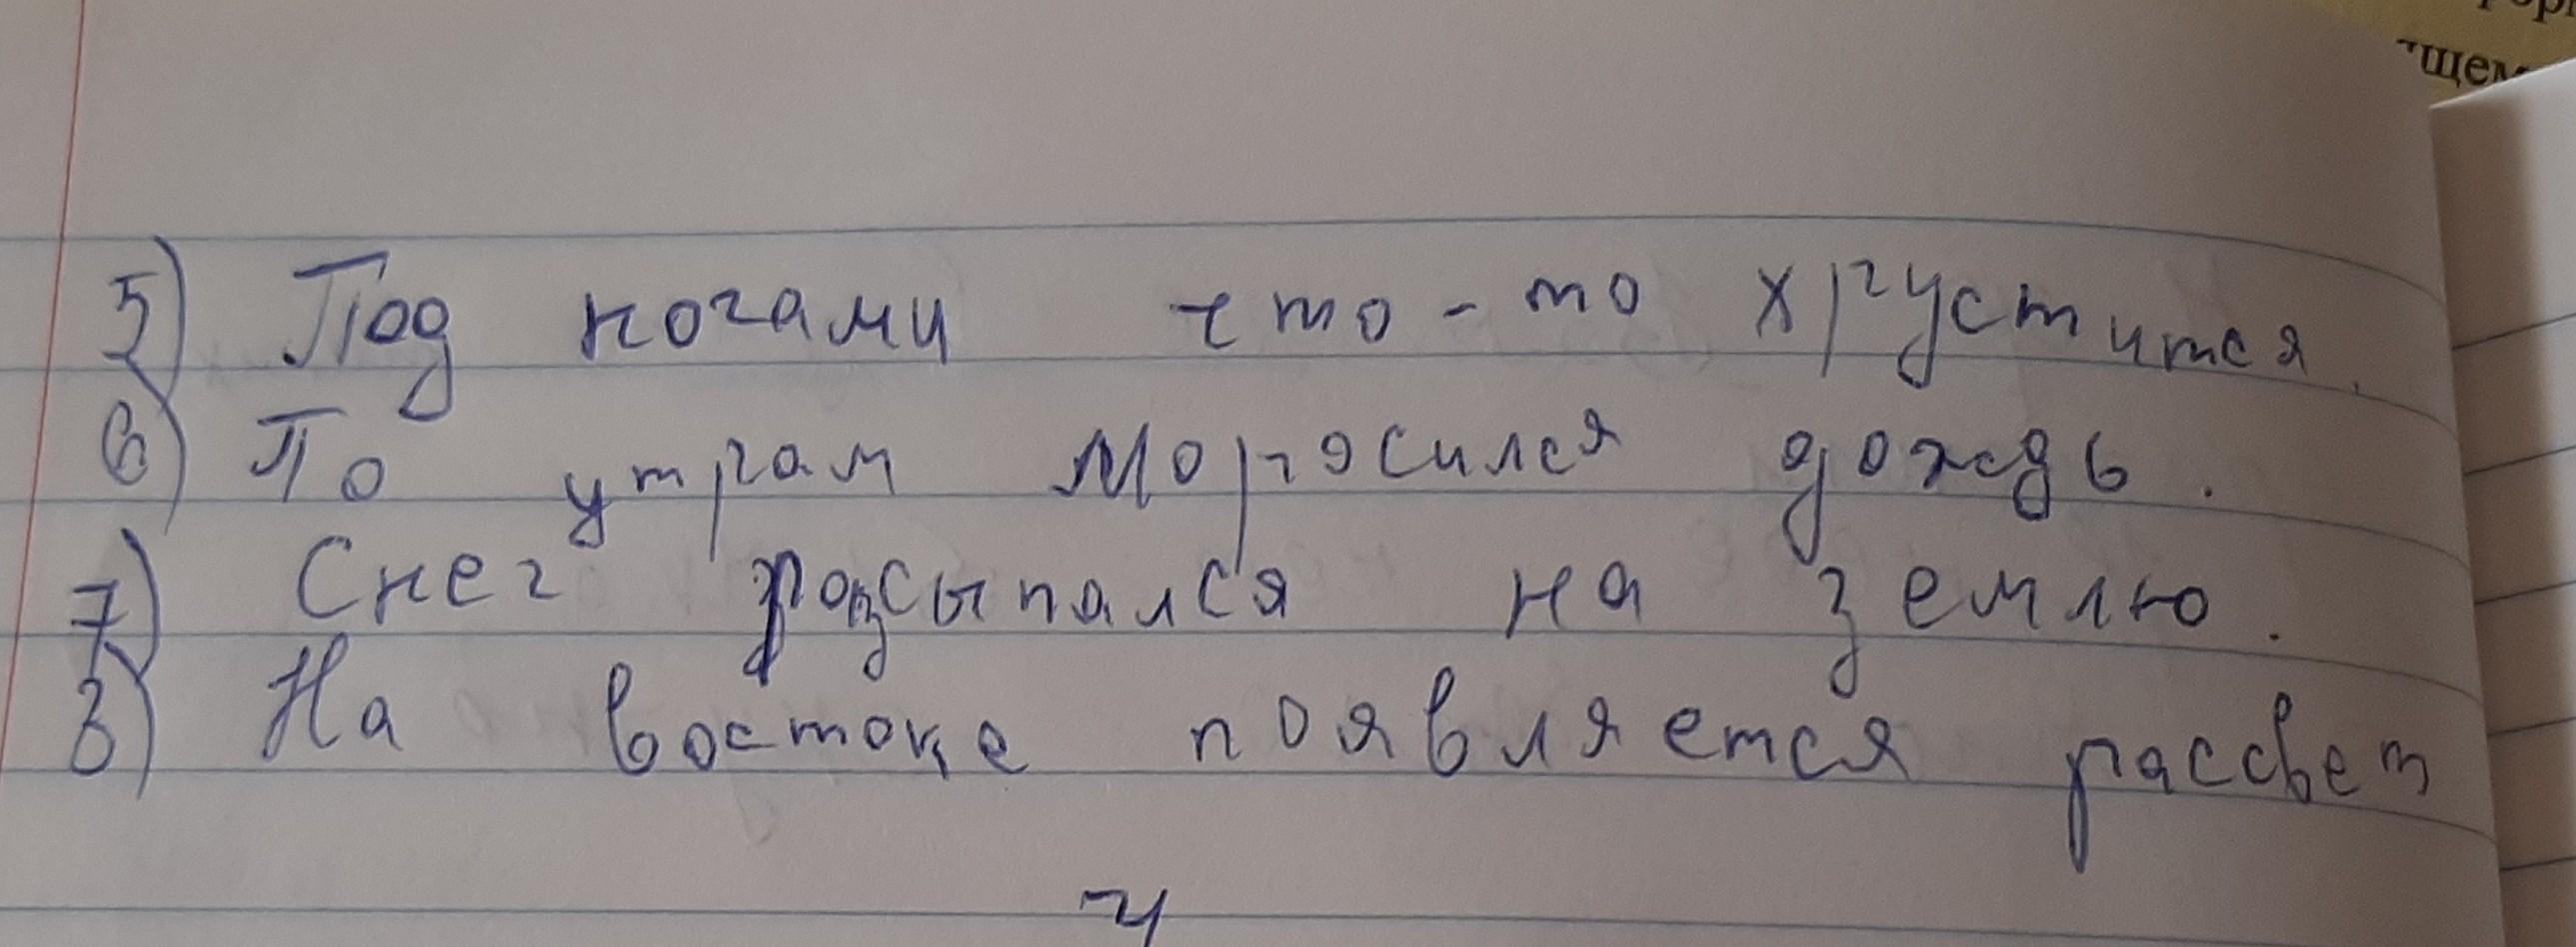 щем
5) Под ногами что-то хрустится.
6) По утрам моросился дождь.
7) Снег розсыпался на землю.
8) На востоке появляется рассвет